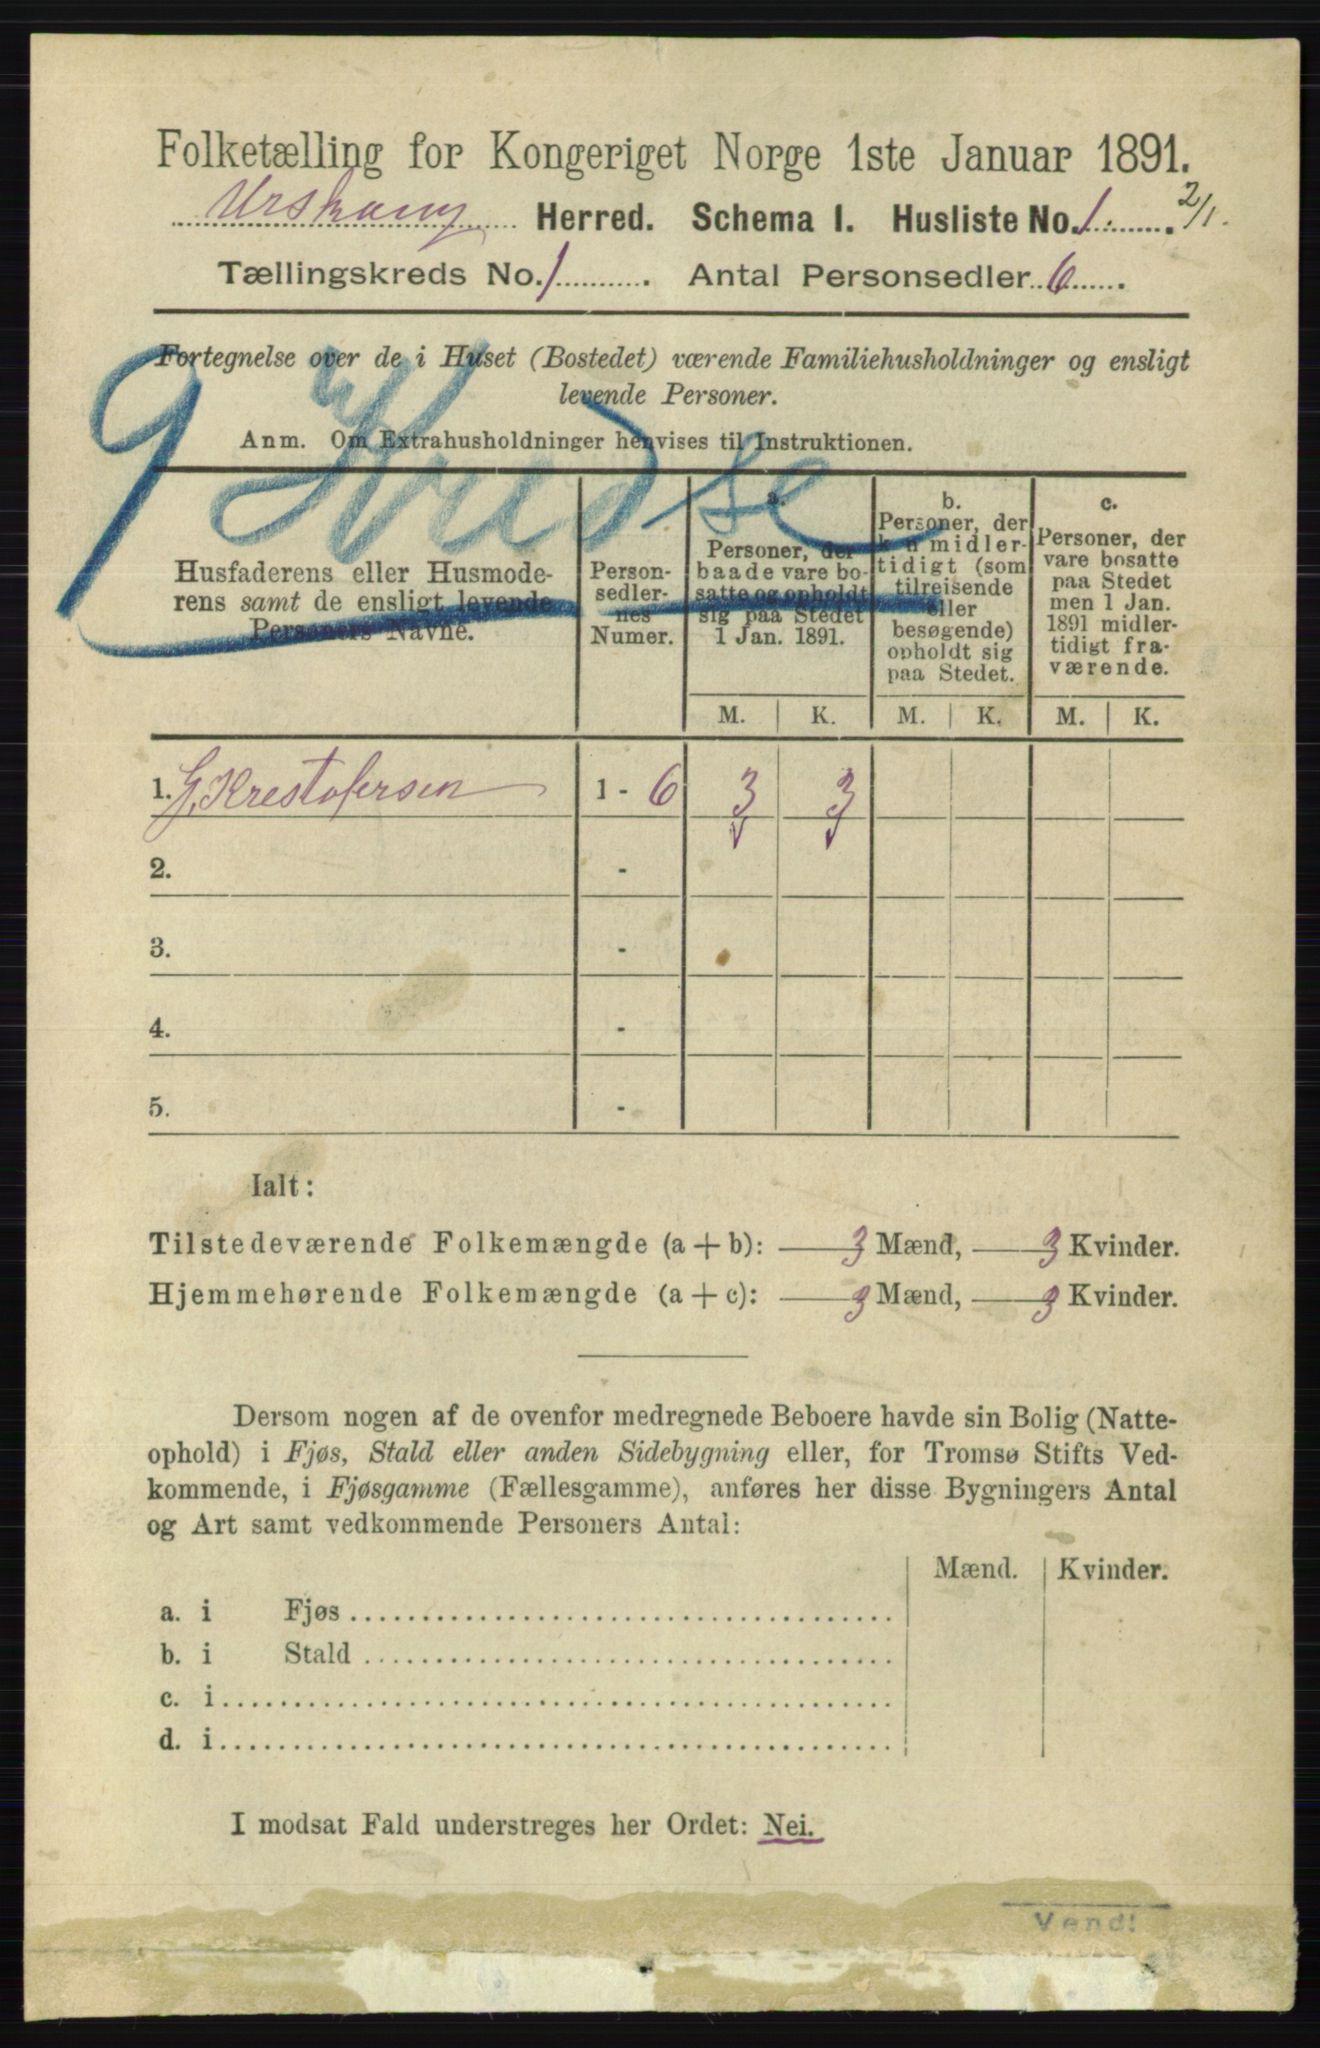 Folketælling for Kongeriget Norge 1ste Januar 1891.
Urskoug Herred. Schema I. Husliste No. 1. 2/1.
Tællingskreds No. 1. Antal Personsedler 6.
Fortegnelse over de i Huset (Bostedet) værende Familiehusholdninger og ensligt
levende Personer.
Anm. Om Extrahusholdninger henvises til Instruktionen.
9 Kredse
Husfaderens eller Husmode-
rens samt de ensligt levende
Personers Navne.
Person-
sedler-
nes
Numer.
a.
Personer, der
baade vare bo-
satte og opholdt
sig paa Stedet
1 Jan. 1891.
b.
Personer, der
kun midler-
tidigt (som
tilreisende
eller
besøgende)
opholdt sig
paa Stedet.
c.
Personer, der
vare bosatte
paa Stedet
men 1 Jan.
1891 midler-
tidigt fra-
værende.
M. K. M. K. M. K.
1. G. Krestofersen 1 - 6 3 3
2. -
3. -
4. -
5. -
Ialt:
Tilstedeværende Folkemængde (a + b): 3 Mænd, 3 Kvinder.
Hjemmehørende Folkemængde (a + c): 3 Mænd, 3 Kvinder.
Dersom nogen af de ovenfor medregnede Beboere havde sin Bolig (Natte-
ophold) i Fjøs, Stald eller anden Sidebygning eller, for Tromsø Stifts Ved-
kommende, i Fjøsgamme (Fællesgamme), anføres her disse Bygningers Antal
og Art samt vedkommende Personers Antal:
Mænd. Kvinder.
a. i Fjøs
b. i Stald
c. i
d. i
I modsat Fald understreges her Ordet: Nei.
Vend!